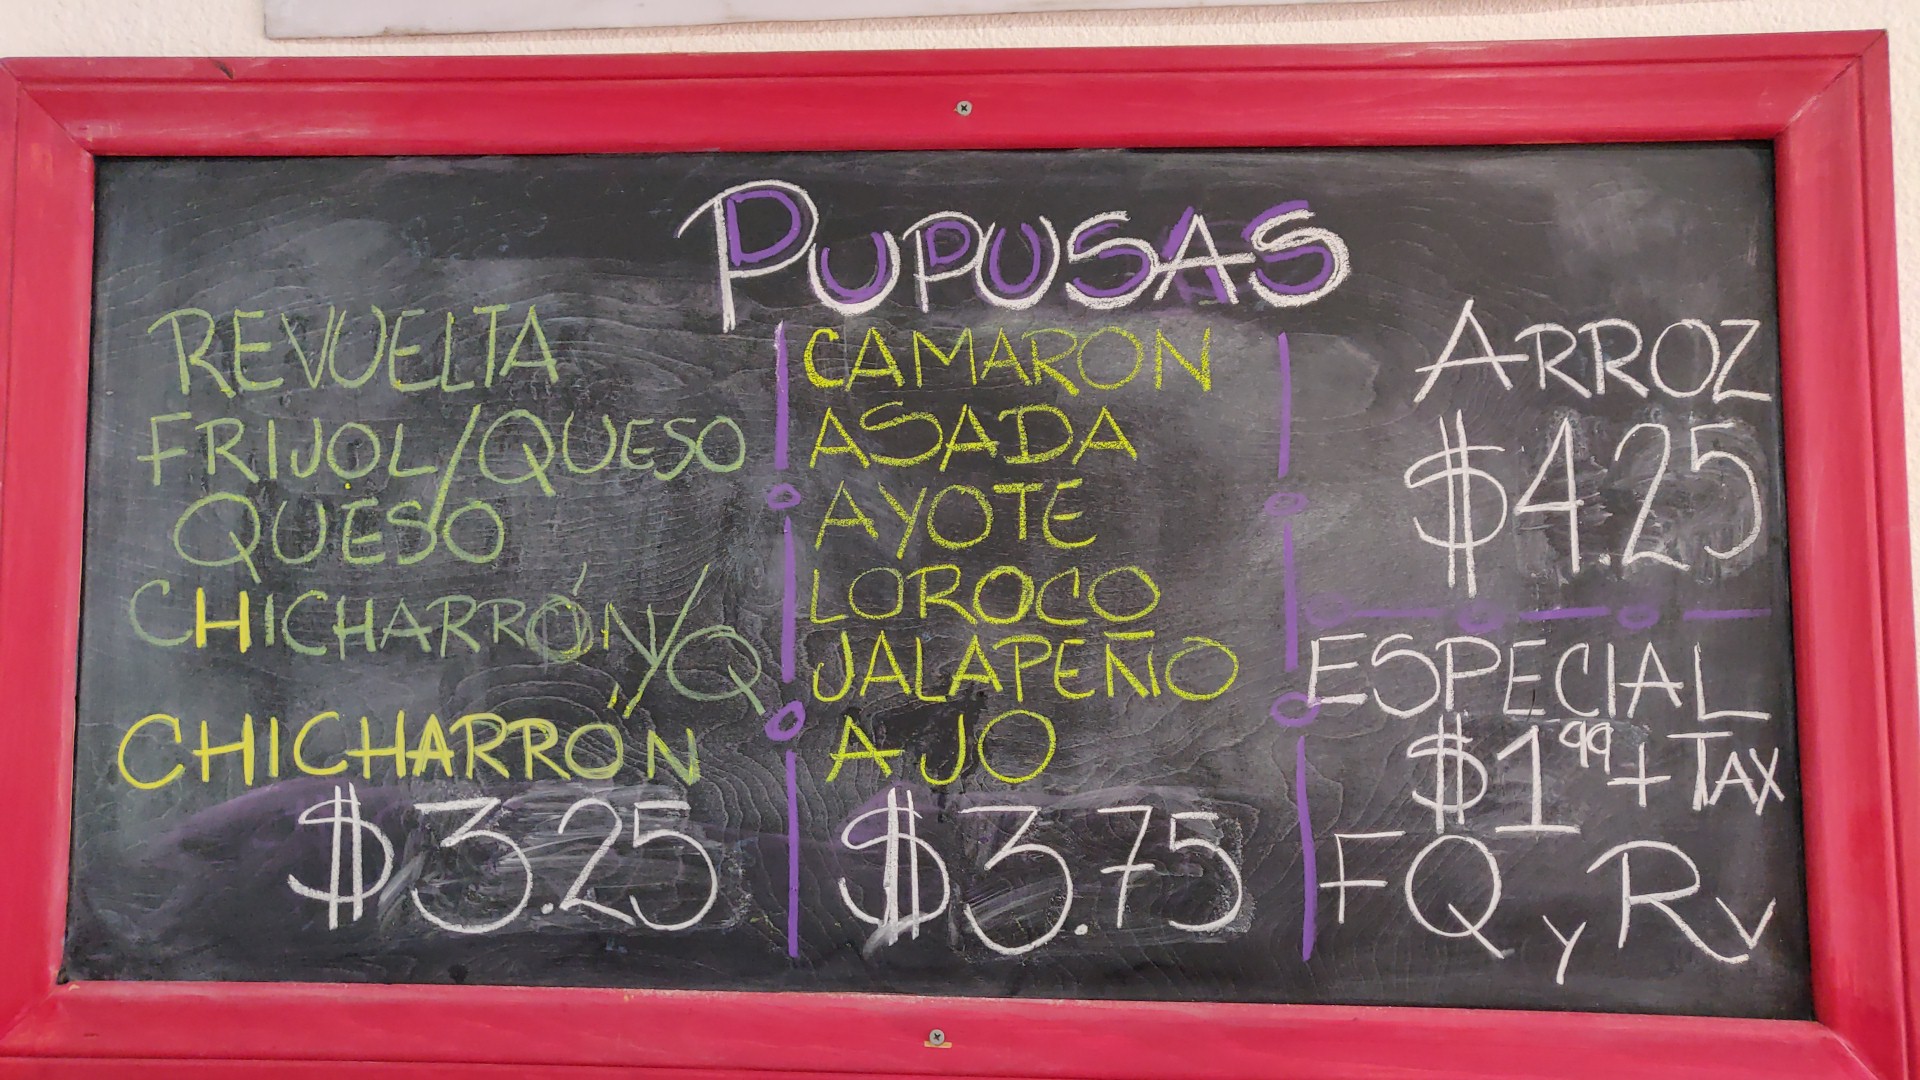 PUPUSAS
REVUELTA
FRIJOL/QUESO
QUESO
CHICHARRÓN/Q
CHICHARRÓN
$3.25
CAMARON
ASADA
AYOTE
LOROCO
JALAPEÑO
AJO
$3.75
ARROZ
$4.25
ESPECIAL
$1.99 + TAX
FQ y RV